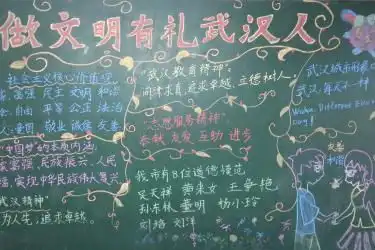 做文明有礼武汉人
社会主义核心价值观
富强 民主 文明 和谐
自由 平等 公正 法治
爱国 敬业 诚信 友善
"中国梦"的本质内涵
国家富强、民族振兴、人民
实现中华民族伟大复兴
武汉精神"
为人先,追求卓越。
"武汉教育精神"
追求卓越、立德树人。
"志愿服务精神"
奉献 友爱 互助 进步
我市有8位道德模范
吴天祥 黄来女 王争艳
孙东林 董明 杨小玲
刘培 刘洋
武汉城市形象
武汉,每天不一样
Wuhan, Different Every
Day!
友善